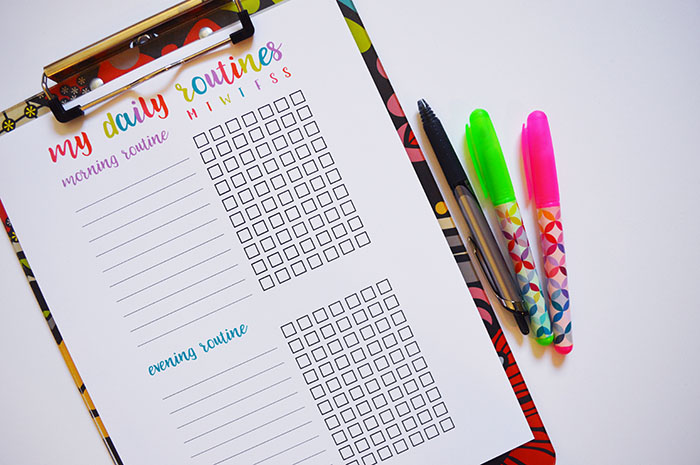 my daily routines
M T W T F S S
morning routine
evening routine